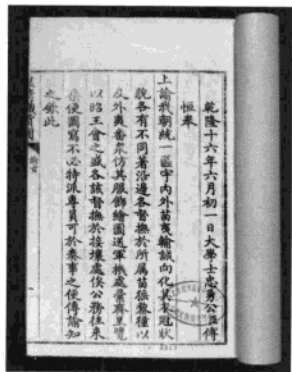 乾隆十六年六月初一日大學士忠勇公臣傅
恒奉
上諭我朝統一區宇內外苗夷輸誠向化其衣冠狀
貌各有不同著沿邊各督撫於所屬苗猺黎獞以
及外夷番衆仿其服飾繪圖送軍機處彙齊呈覽
以昭王會之盛各該督撫於接壤處俟公務往來
之便圖寫不必特派專員可於奏事之便傳諭知
之欽此